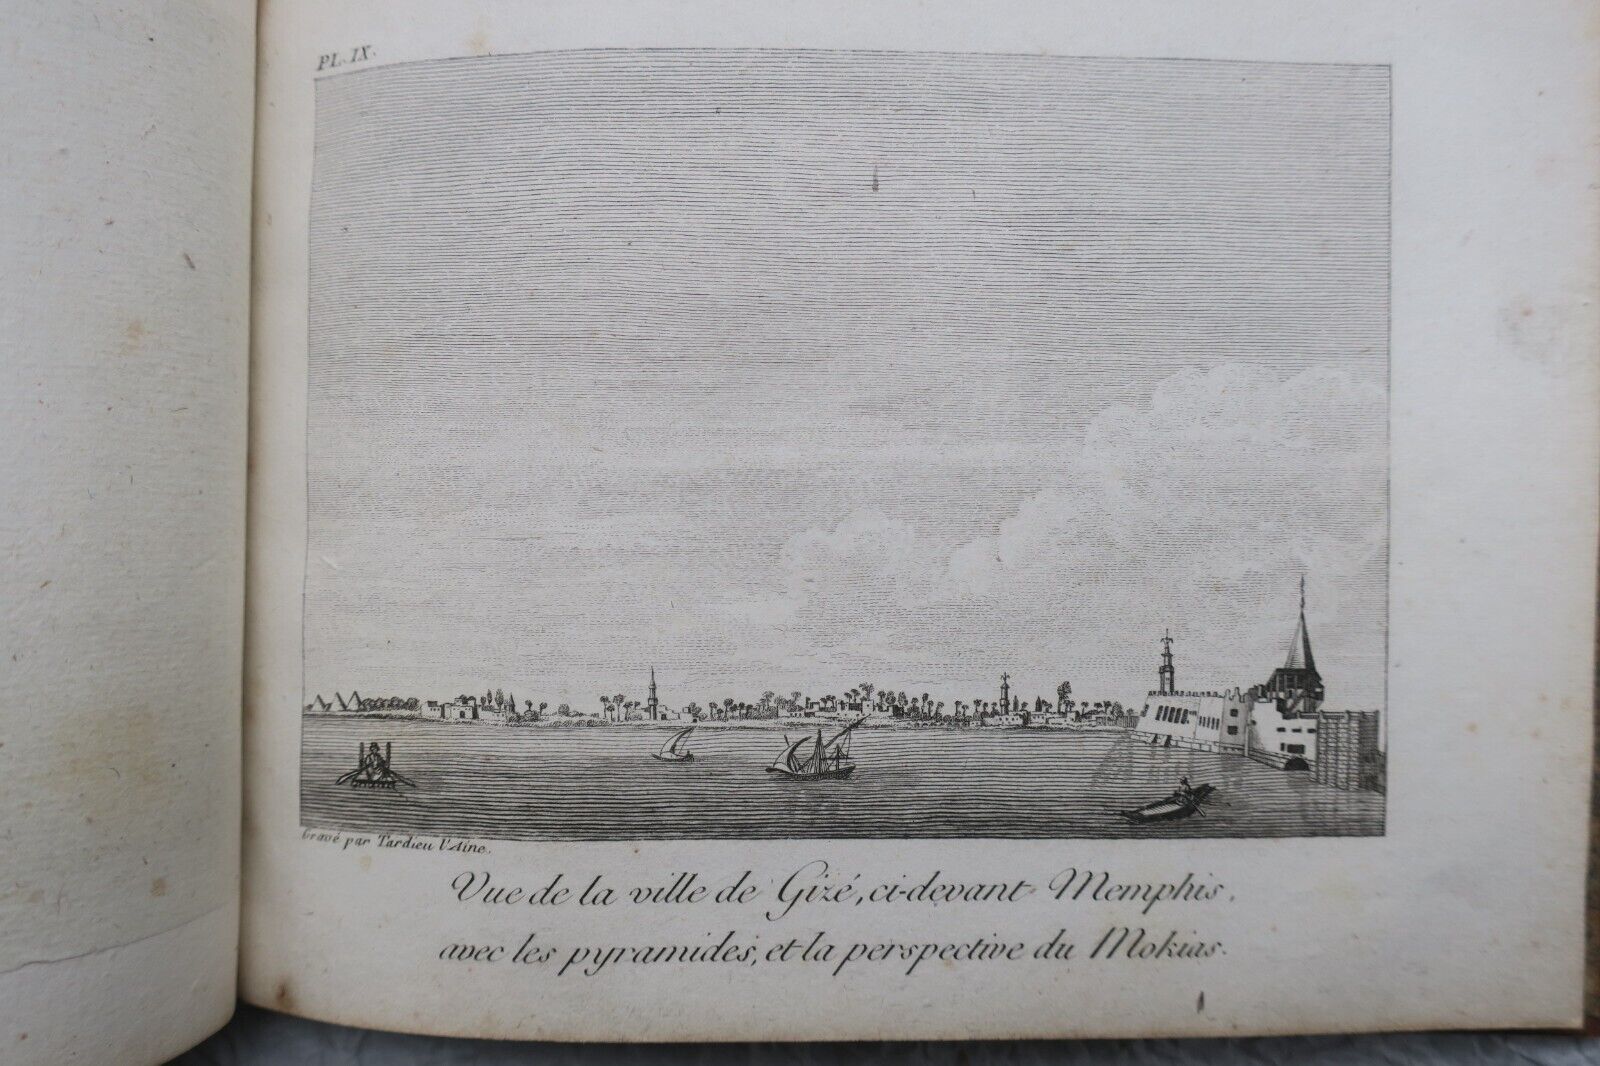 PL. IX.
Gravé par Tardieu l'Aîné.
Vue de la ville de Gizé, ci-devant Memphis,
avec les pyramides, et la perspective du Mokias.